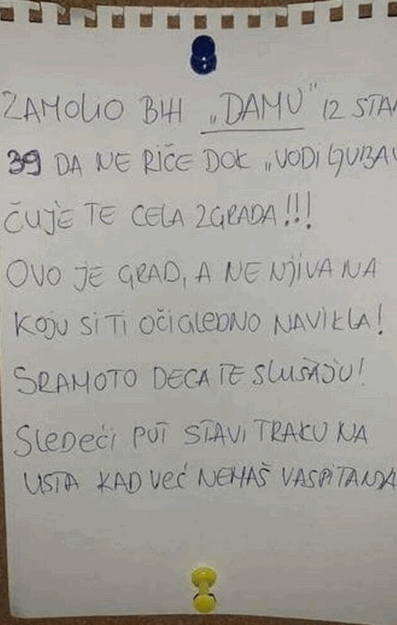 ZAMOLIO BIH „DAMU" IZ STA
39 DA NE RIČE DOK „VODI LJUBAV
ČUJE TE CELA ZGRADA!!!
OVO JE GRAD, A NE NJIVA NA
KOJU SI TI OČIGLEDNO NAVIKLA!
SRAMOTO DECA TE SLUŠAJU!
SLEDEĆI PUT STAVI TRAKU NA
USTA KAD VEĆ NEMAŠ VASPITANJA